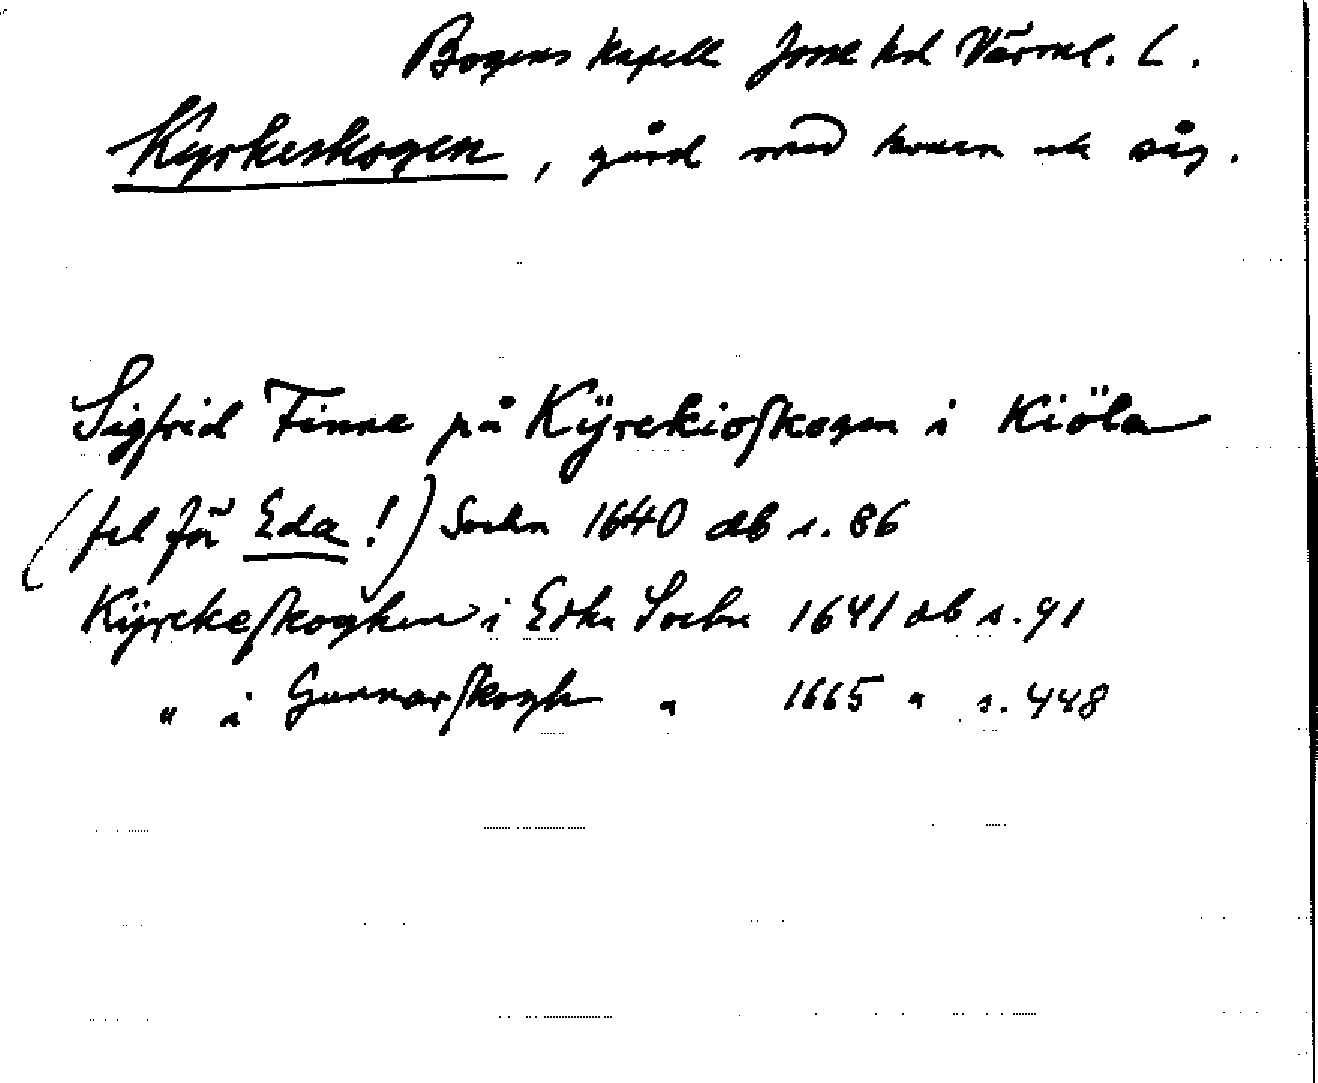 Bogens kapell Jösse hd Värml. L.
Kyrkeskogen, gård med kvarn ock såg.
Sigfrid Finne på Kÿrekioſkogen i Kiöla
(fel för Eda!) Sochn 1640 db s. 86
Kÿrckeſkoghen i Edha Sochn 1641 db s. 91
" i Gunnarſkogh " 1665 " s. 448